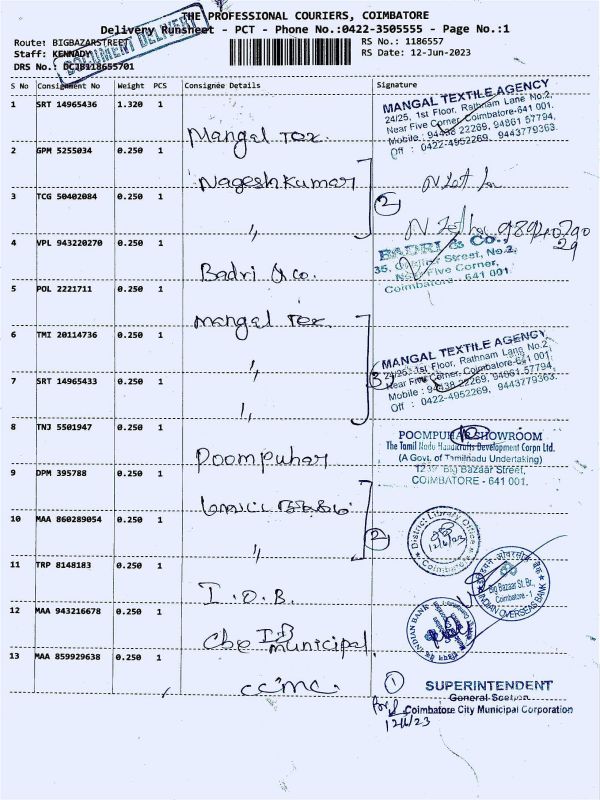 THE PROFESSIONAL COURIERS, COIMBATORE
Delivery Runsheet - PCT - Phone No.:0422-3505555 - Page No.:1
Route: BIGBAZARSTREET
Staff: KENNADY
DRS No.: DCJB118655701
DOCUMENT DELIVERY
RS No.: 1186557
RS Date: 12-Jun-2023
S No Consignment No Weight PCS Consignee Details Signature
1 SRT 14965436 1.320 1 Mangal Tex.
MANGAL TEXTILE AGENCY
24/25, 1st Floor, Rathnam Lane No.2,
Near Five Corner, Coimbatore-641 001.
Mobile : 94438 22269, 94861 57794,
Off : 0422-4952269, 9443779363.
2 GPM 5255034 0.250 1 Nagesh Kumar
3 TCG 50402084 0.250 1 "
2
4 VPL 943220270 0.250 1 Badri & Co.
BADRI & Co.,
35, Street, No.2,
Near Five Corner,
Coimbatore - 641 001
5 POL 2221711 0.250 1 Mangal Tex.
6 TMI 20114736 0.250 1 "
7 SRT 14965433 0.250 1 "
3
MANGAL TEXTILE AGENCY
24/25, 1st Floor, Rathnam Lane No.2,
Near Five Corner, Coimbatore-641 001.
Mobile : 94438 22269, 94861 57794,
Off : 0422-4952269, 9443779363.
8 TNJ 5501947 0.250 1 Poompuhar
POOMPUHAR SHOWROOM
The Tamil Nadu Handicrafts Development Corpn Ltd.
(A Govt. of Tamilnadu Undertaking)
Big Bazaar Street,
COIMBATORE - 641 001.
9 DPM 395788 0.250 1
10 MAA 860289054 0.250 1 "
2
District Library Office
Coimbatore
12/6/23
11 TRP 8148183 0.250 1 I.O.B.
Big Bazaar St. Br.,
Coimbatore - 1
INDIAN OVERSEAS BANK
12 MAA 943216678 0.250 1 Cbe IB Municipal.
INDIAN BANK
13 MAA 859929638 0.250 1 CCMC.
1
SUPERINTENDENT
General Section
Coimbatore City Municipal Corporation
12/6/23